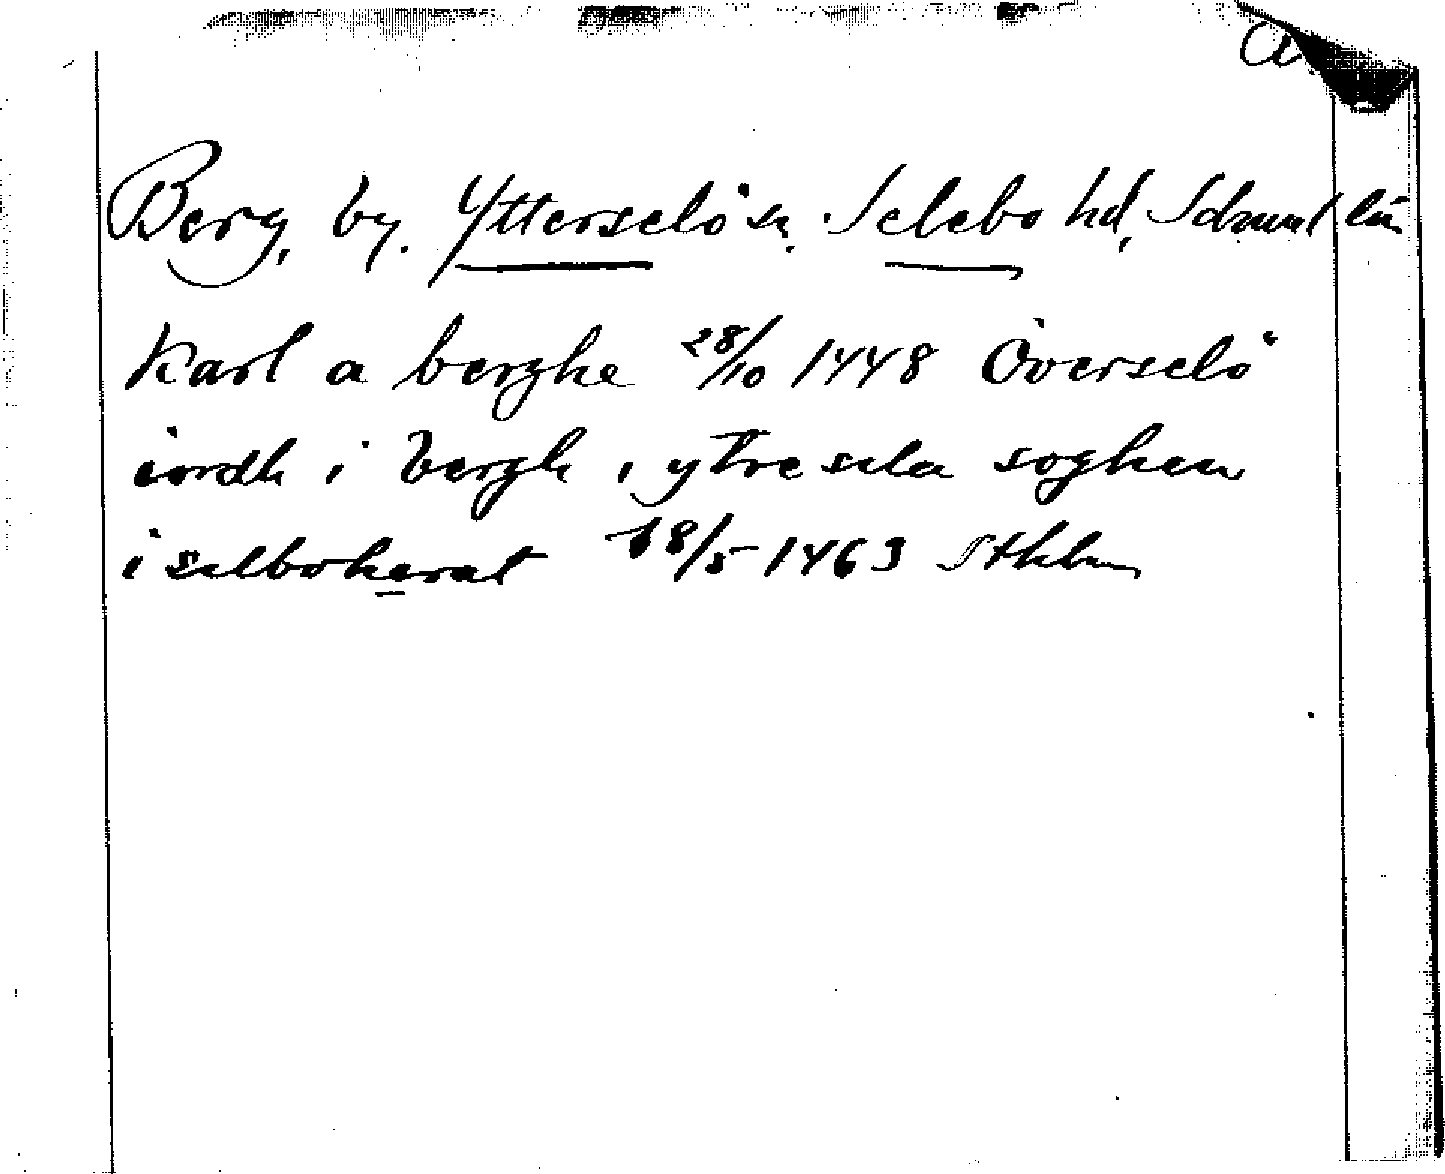 Berg, by. Ytterselö sn. Selebo hd, Södermanl län
Karl a berghe 28/10 1448 Överselö
iordh i bergh i ytresela soghen
i selbohærat 18/5 1463 Sthlm